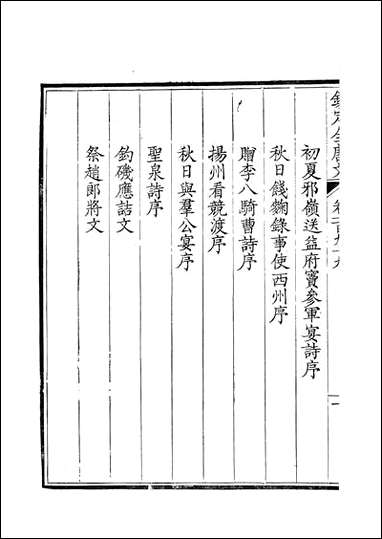 欽定全唐文
卷一百九十九
一
初夏邪嶺送益府竇參軍宴詩序
秋日餞麴錄事使西州序
贈李八騎曹詩序
揚州看競渡序
秋日與羣公宴序
聖泉詩序
釣磯應詰文
祭趙郎將文